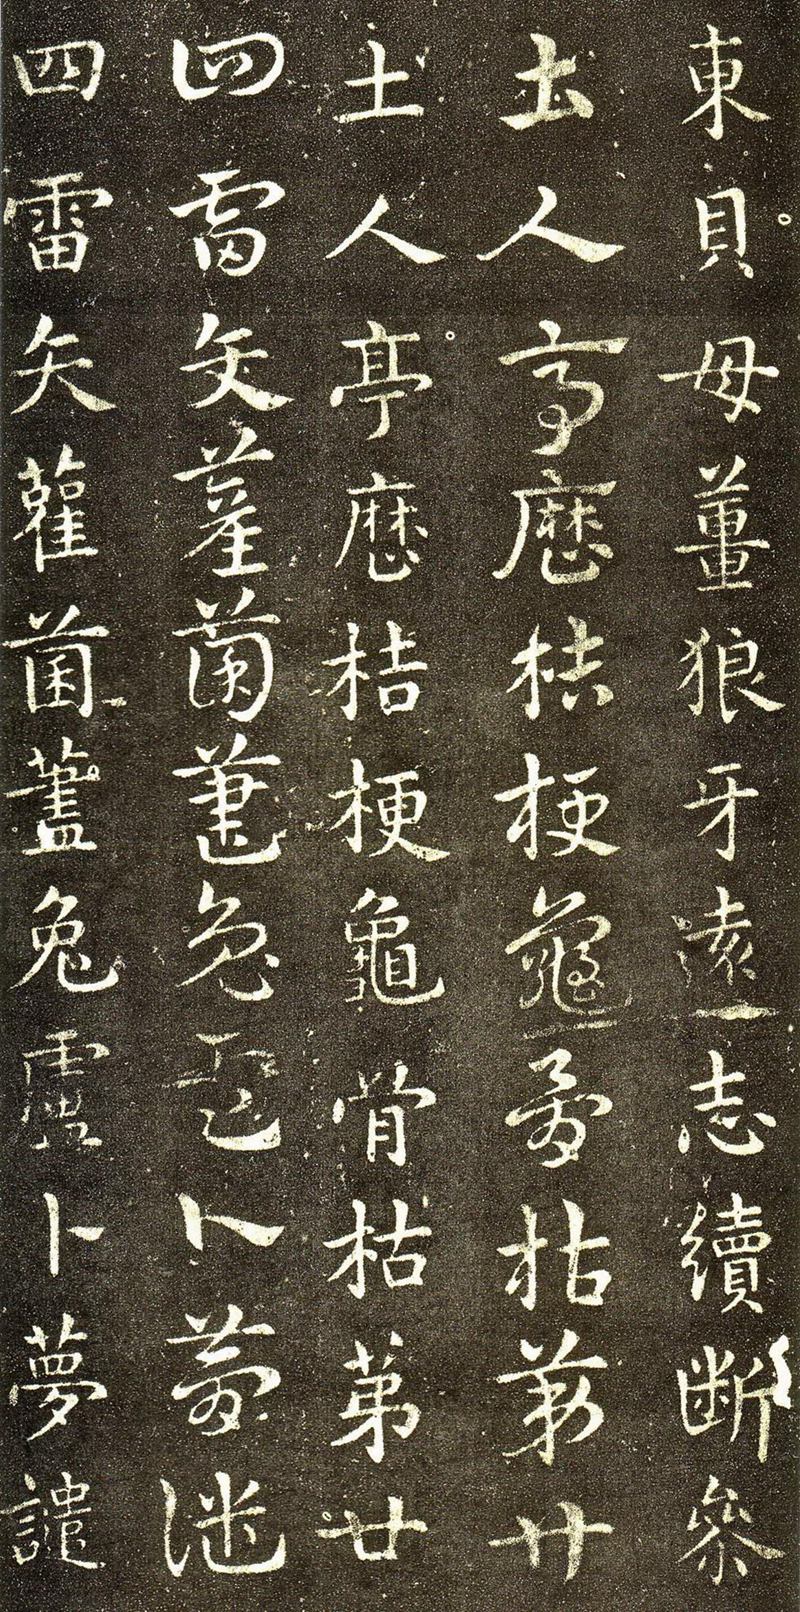 東貝母薑狼牙遠志續斷參
土人亭歷桔梗龜骨枯苐廿
土人亭歷桔梗龜骨枯苐廿
四雷矢雚菌藎兔盧卜夢譴
四雷矢雚菌藎兔盧卜夢譴